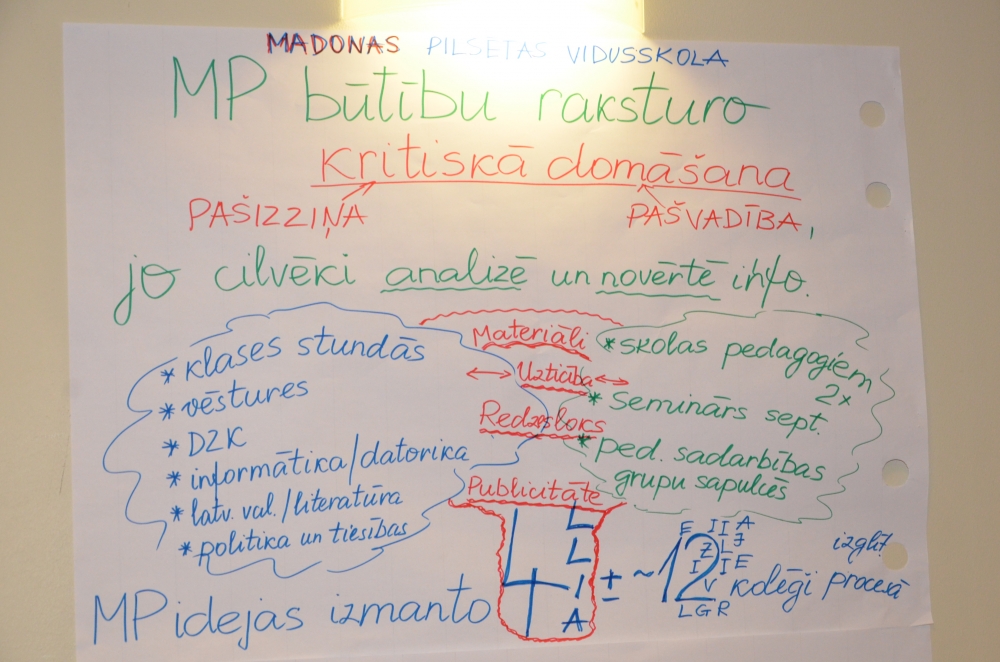 MADONAS PILSĒTAS VIDUSSKOLA
MP būtību raksturo
Kritiskā domāšana
PAŠIZZIŅA
PAŠVADĪBA,
jo cilvēki analizē un novērtē info.
* klases stundās
* vēstures
* DZK
* informātika/datorika
* latv. val./literatūra
* politika un tiesības
Materiāli
Uzticība
Redzesloks
Publicitāte
* skolas pedagogiem
2x
* Seminārs sept.
* ped. sadarbības
grupu sapulcēs
MP idejas izmanto 4 ± ~12 kolēģi procesā
L
L
I
A
E I I A
L G R
izglīt.